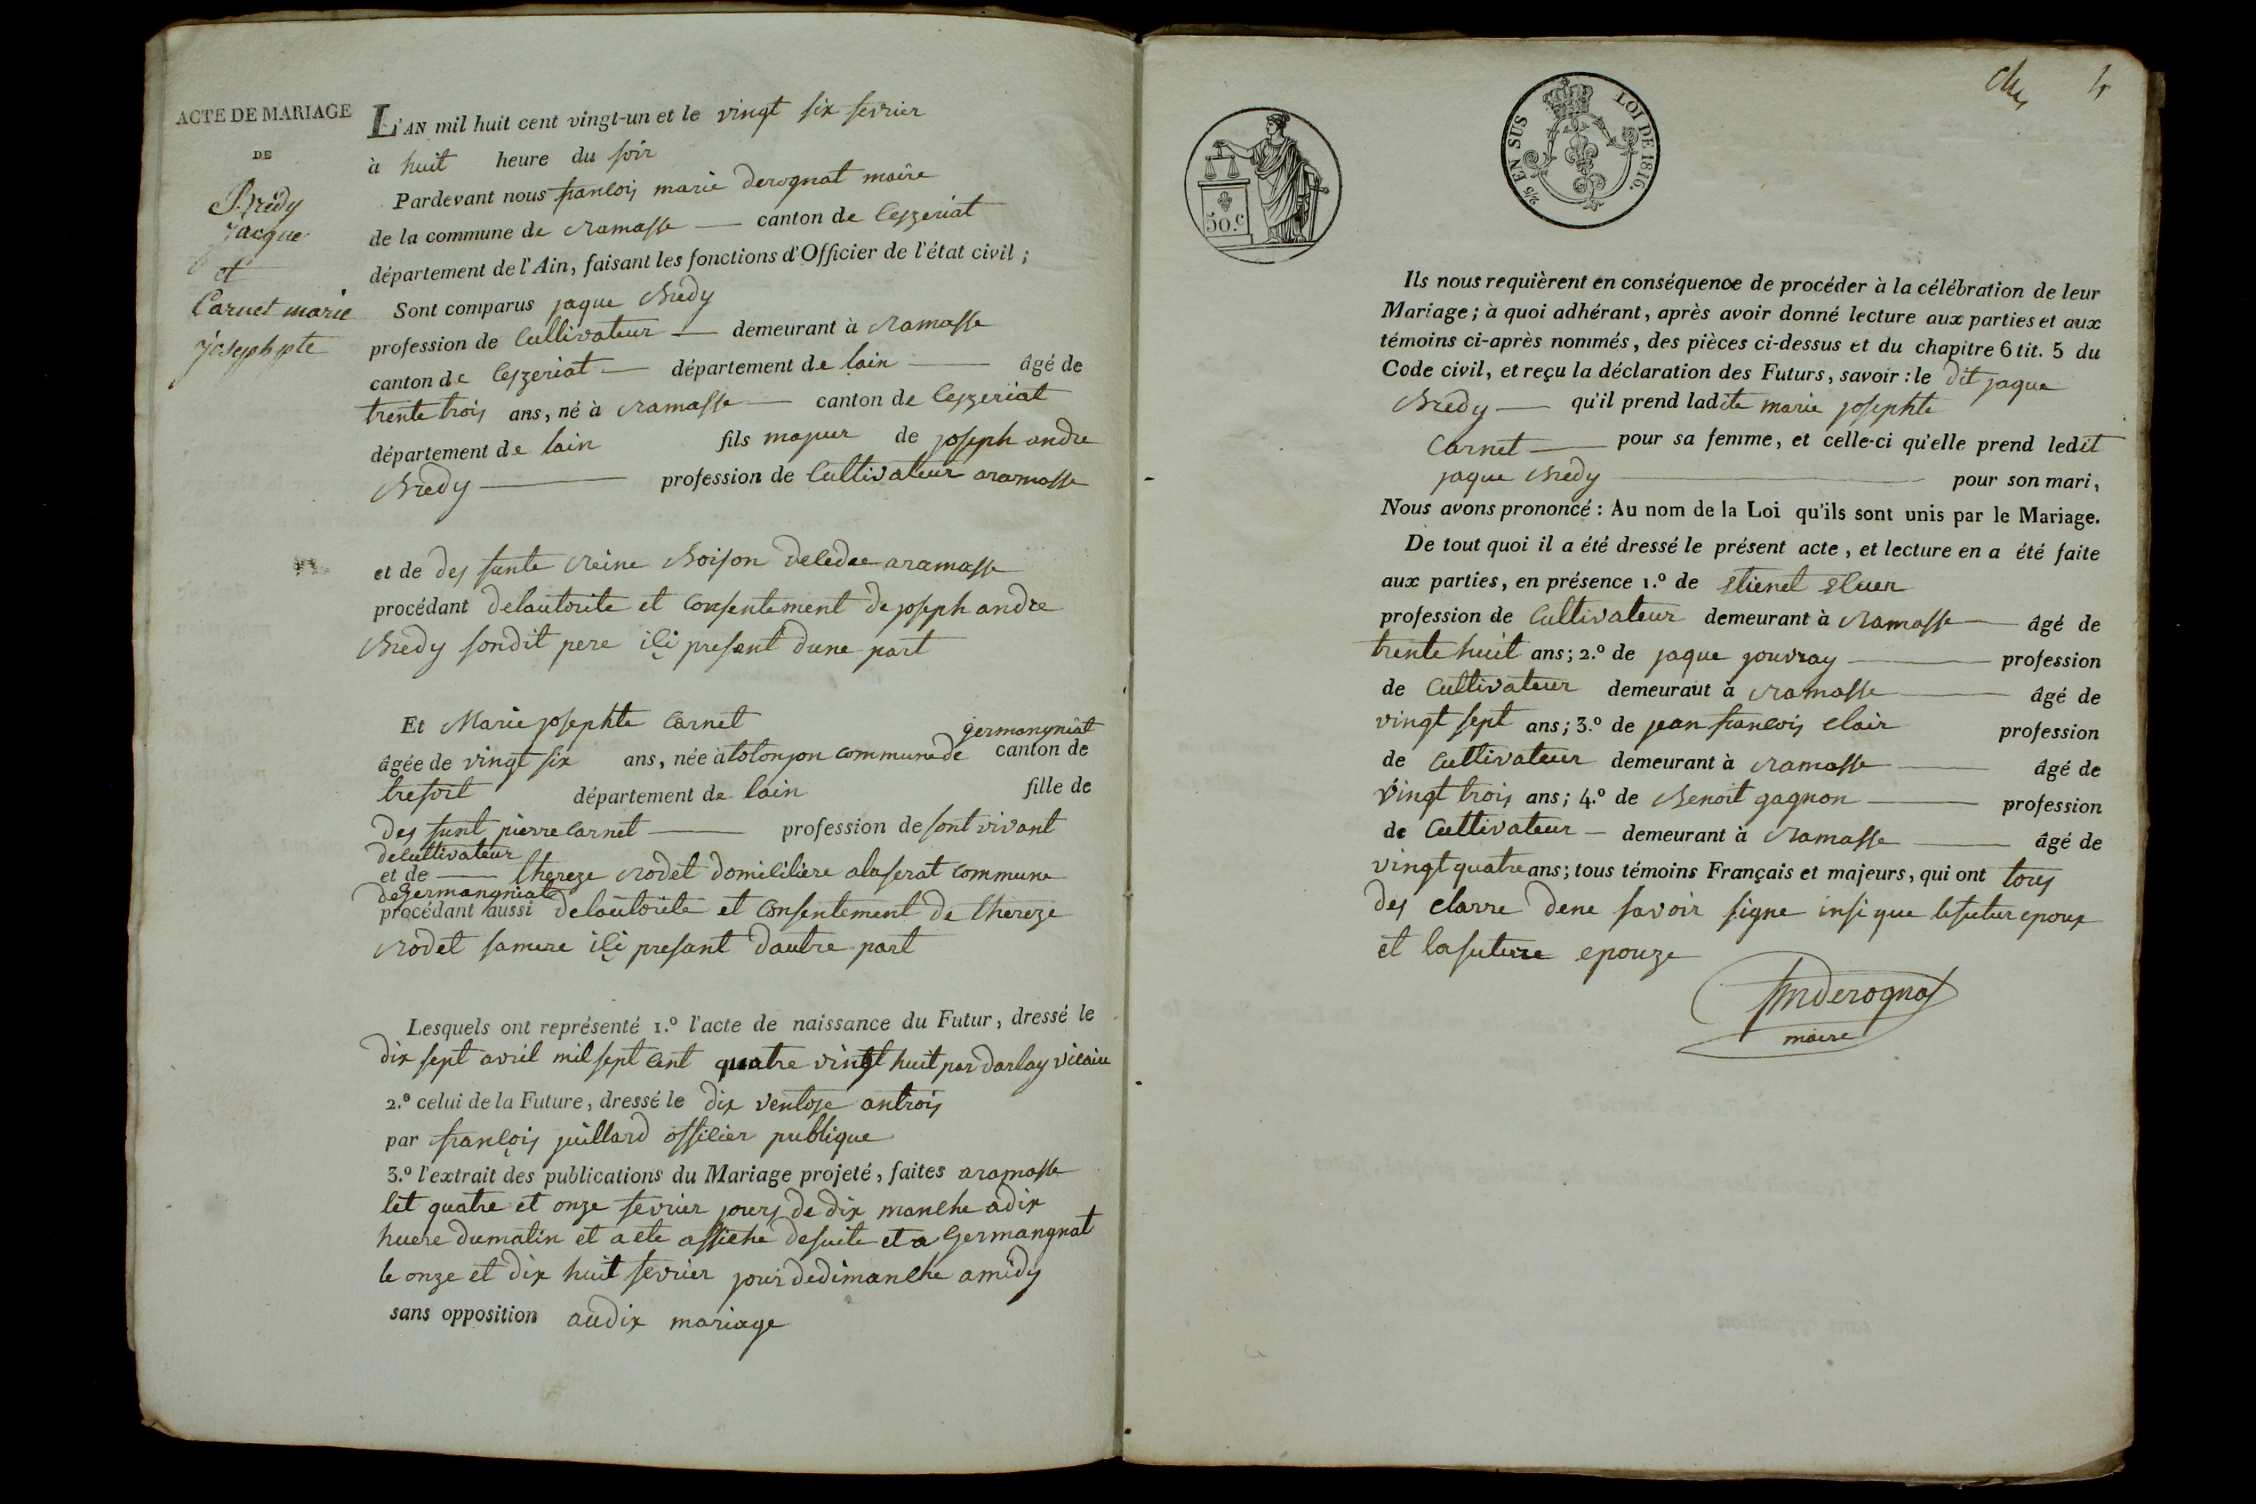 ACTE DE MARIAGE
DE
Brédy
Jacque
et
Carnet marie
josephpte
L'AN mil huit cent vingt-un et le vingt six fevrier
à huit heure du soir
Pardevant nous francois marie derognat maire
de la commune de ramasse canton de Ceyzeriat
département de l'Ain, faisant les fonctions d'Officier de l'état civil ;
Sont comparus jaque Bredy
profession de Cultivateur demeurant à ramasse
canton de Ceyzeriat département de lain âgé de
trente trois ans, né à ramasse canton de Ceyzeriat
département de lain fils majeur de joseph andre
Bredy profession de Cultivateur aramasse
et de des funte reine Boison deledee aramasse
procédant delautorite et Consentement de joseph andre
Bredy sondit pere ici present dune part
Et Marie josephte Carnet
germangniat
âgée de vingt six ans, née à tolonjon commune de canton de
trefort département de lain fille de
des funt pierre Carnet profession de sont vivant
de cultivateur
et de thereze rodet domiciliere alaserat commune
de germangniat
procédant aussi delautorite et Consentement de thereze
rodet samere ici presant dautre part
Lesquels ont représenté 1.º l'acte de naissance du Futur, dressé le
dix sept avril mil sept cent quatre vingt huit par darlay vicaire
2.º celui de la Future, dressé le dix ventose antrois
par françois juillard officier publique
3.º l'extrait des publications du Mariage projeté, faites aramasse
let quatre et onze fevrier jours de dix manche adix
huere dumatin et a ete affiche desuite et a Germangnat
le onze et dix huit fevrier jour dedimanche amidy
sans opposition audix mariage
4
50.c
2/5 EN SUS LOI DE 1816.
Ils nous requièrent en conséquence de procéder à la célébration de leur
Mariage ; à quoi adhérant, après avoir donné lecture aux parties et aux
témoins ci-après nommés, des pièces ci-dessus et du chapitre 6 tit. 5 du
Code civil, et reçu la déclaration des Futurs, savoir : le dit jaque
Bredy qu'il prend ladite marie josephte
Carnet pour sa femme, et celle-ci qu'elle prend ledit
jaque Bredy pour son mari,
Nous avons prononcé : Au nom de la Loi qu'ils sont unis par le Mariage.
De tout quoi il a été dressé le présent acte, et lecture en a été faite
aux parties, en présence 1.º de Etienet
profession de Cultivateur demeurant à ramasse âgé de
trente huit ans ; 2.º de jaque jouvray profession
de Cultivateur demeurant à ramasse âgé de
vingt sept ans ; 3.º de jean francois clair profession
de Cultivateur demeurant à ramasse âgé de
vingt trois ans ; 4.º de Benoit gagnon profession
de Cultivateur demeurant à ramasse âgé de
vingt quatre ans ; tous témoins Français et majeurs, qui ont tous
des clarre dene savoir signe insi que lefutur epoux
et lafuture epouze
fmderognat
maire